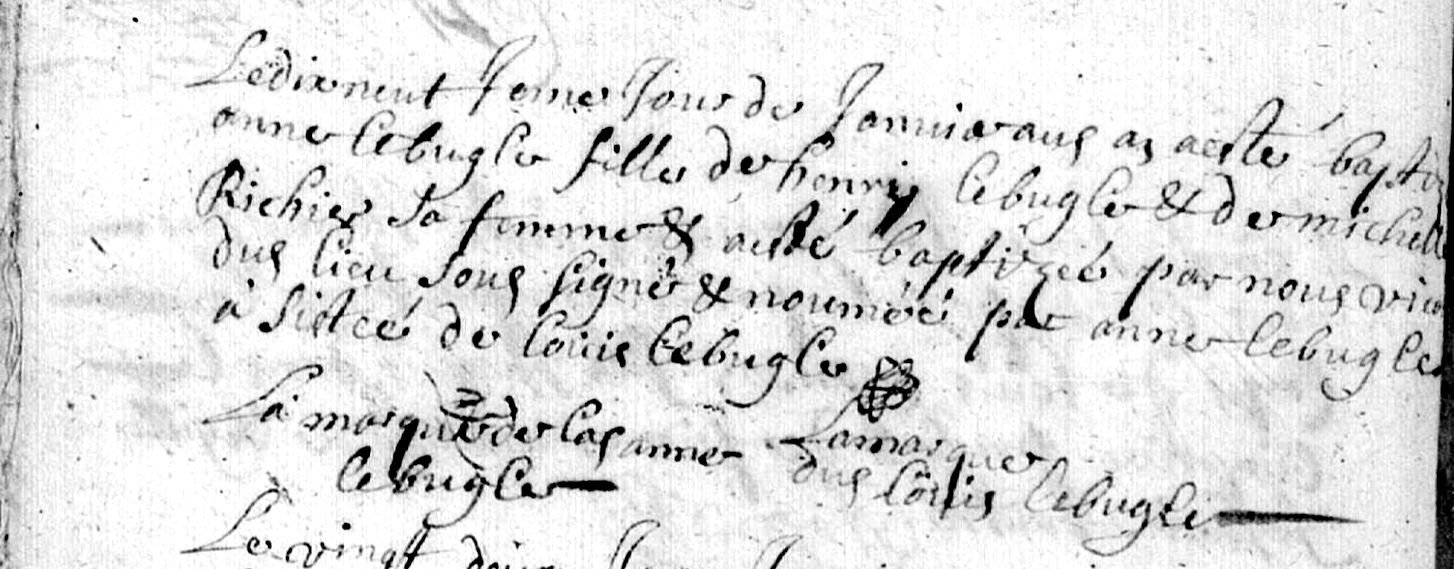 Ledixneuf Jeme Jour de Januier aud an aesté bapti
anne lebugle fille de henry lebugle & de michell
Richier sa femme & aesté baptizéé par nous vica
dud lieu sous signé & nouméé par anne lebugle
à sistéé de louis lebugle
La marque de lad anne Lamarque
lebugle dud louis lebugle
Le vingt